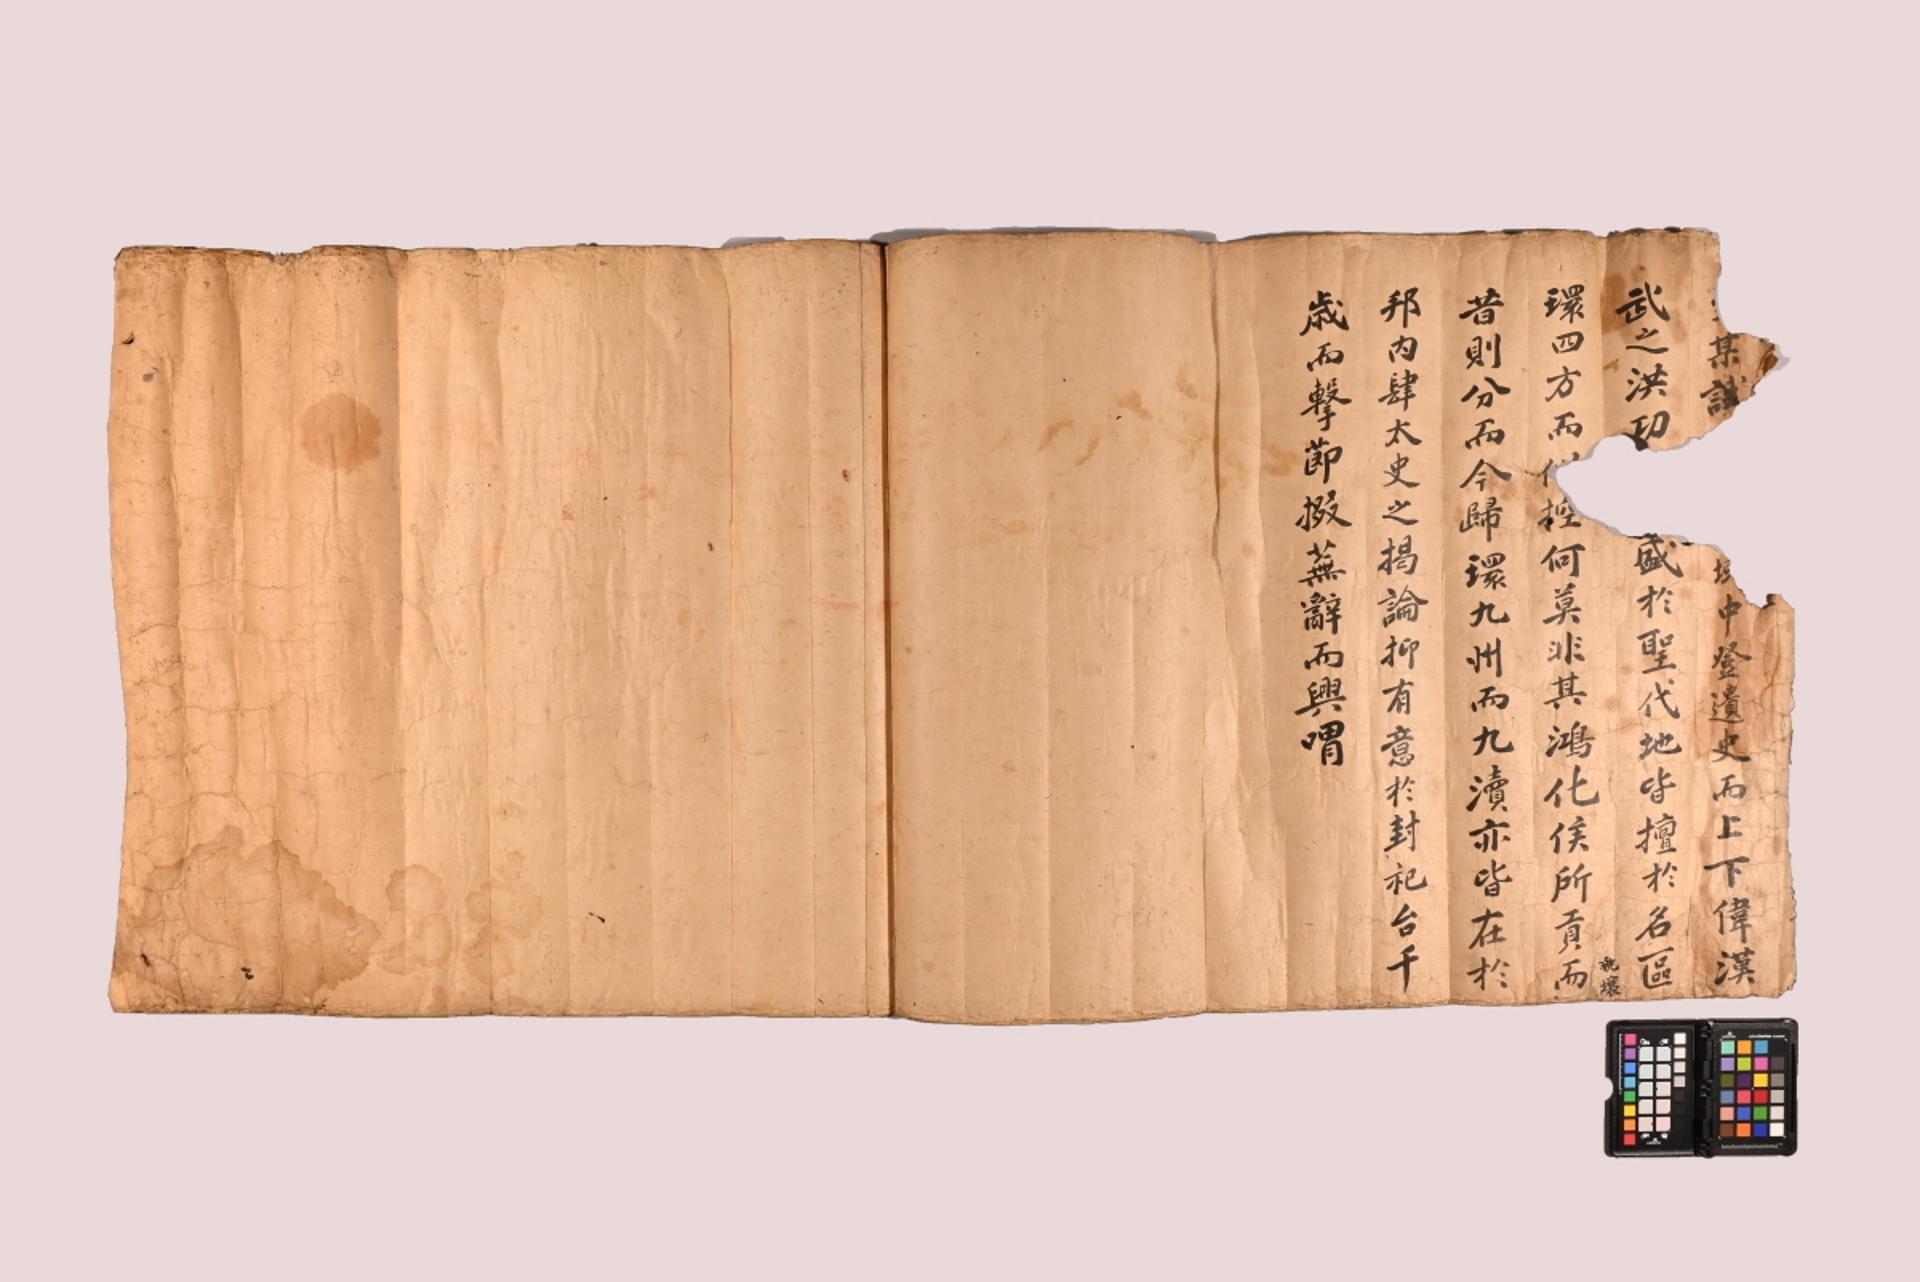 某議中登遺史而上下偉漢
武之洪功盛於聖代地皆擅於名區
環四方而控何莫非其鴻化侯所貢而
執壤
昔則分而今歸環九州而九瀆亦皆在於
邦內肆太史之揭論抑有意於封祀台千
歲而擊節掇蕪辭而興喟